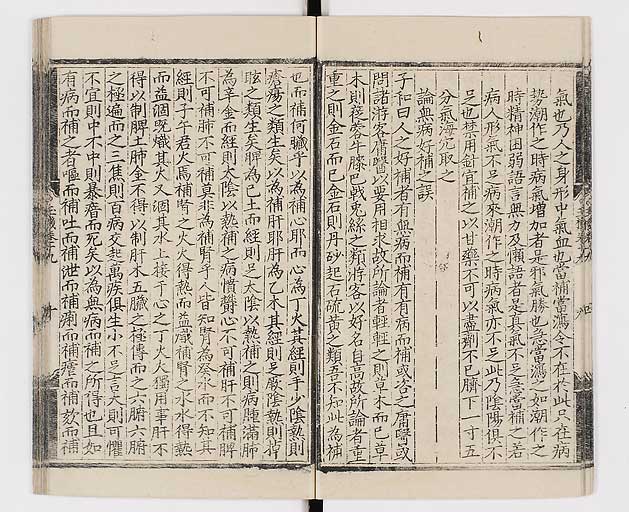 氣也乃人之身形中氣血也當補當瀉全不在於此只在病
勢潮作之時病氣增加者是邪氣勝也急當瀉之如潮作之
時精神困弱語言無力及懶語者是真氣不足急當補之若
病人形氣不足病來潮作之時病氣亦不足此乃陰陽俱不
足也禁用針宜補之以甘藥不可以盡劑不已臍下一寸五
分氣海穴取之
論無病好補之誤
子和曰人之好補者有無病而補有有病而補或咨之庸醫或
問諸游客庸醫以要用相求故所論者輕輕之則草木而已草
木則蓯蓉牛膝巴戟兔絲之類游客以好名自高故所論者重
重之則金石而已金石則丹砂起石硫黃之類吾不知此為補
也而補何臟乎以為補心耶而心為丁火其經則手少陰熱則
瘡瘍之類生矣以為補肝耶肝為乙木其經則足厥陰熱則掉
眩之類生矣脾為己土而經則足太陰以熱補之則病腫滿肺
為辛金而經則太陰以熱補之病憤鬱心不可補肝不可補脾
不可補肺不可補莫非為補腎乎人皆知腎為癸水而不知其
經則子午君火焉補腎之火火得熱而益熾補腎之水水得熱
而益涸既熾其火又涸其水上接于心之丁火火獨用事肝不
得以制脾土肺金不得以制肝木五臟之極傳而之六腑六腑
之極遍而之三焦則百病交起萬疾俱生小不足言大則可懼
不宜則中不中則暴瘖而死矣以為無病而補之所得也且如
有病而補之者嘔而補吐而補泄而補痢而補瘧而補欬而補